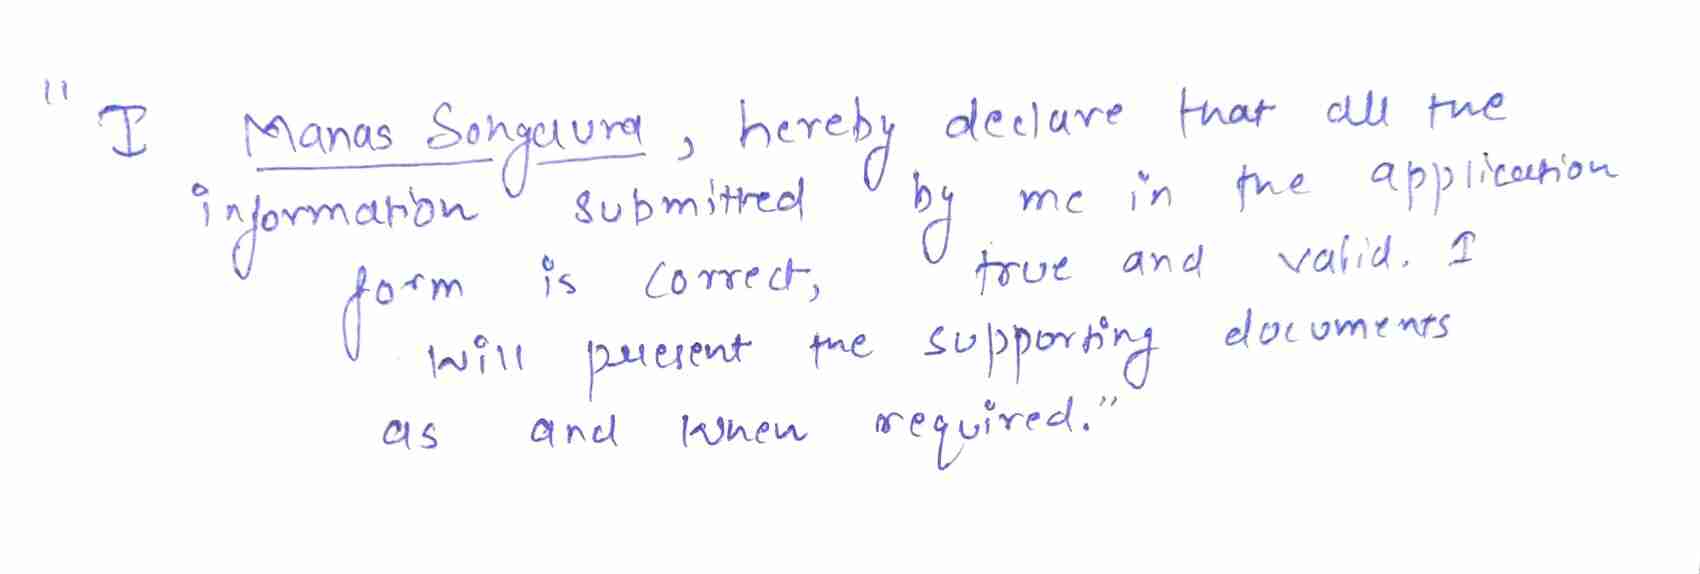 "I Manas Songaura, hereby declare that all the
information submitted by me in the application
form is correct, true and valid. I
will present the supporting documents
as and when required."